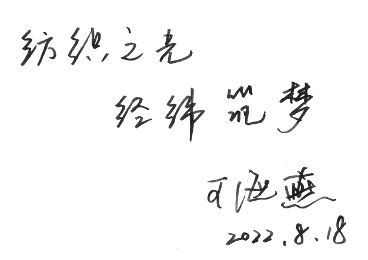 纺织之光
经纬筑梦
可海燕
2022.8.18